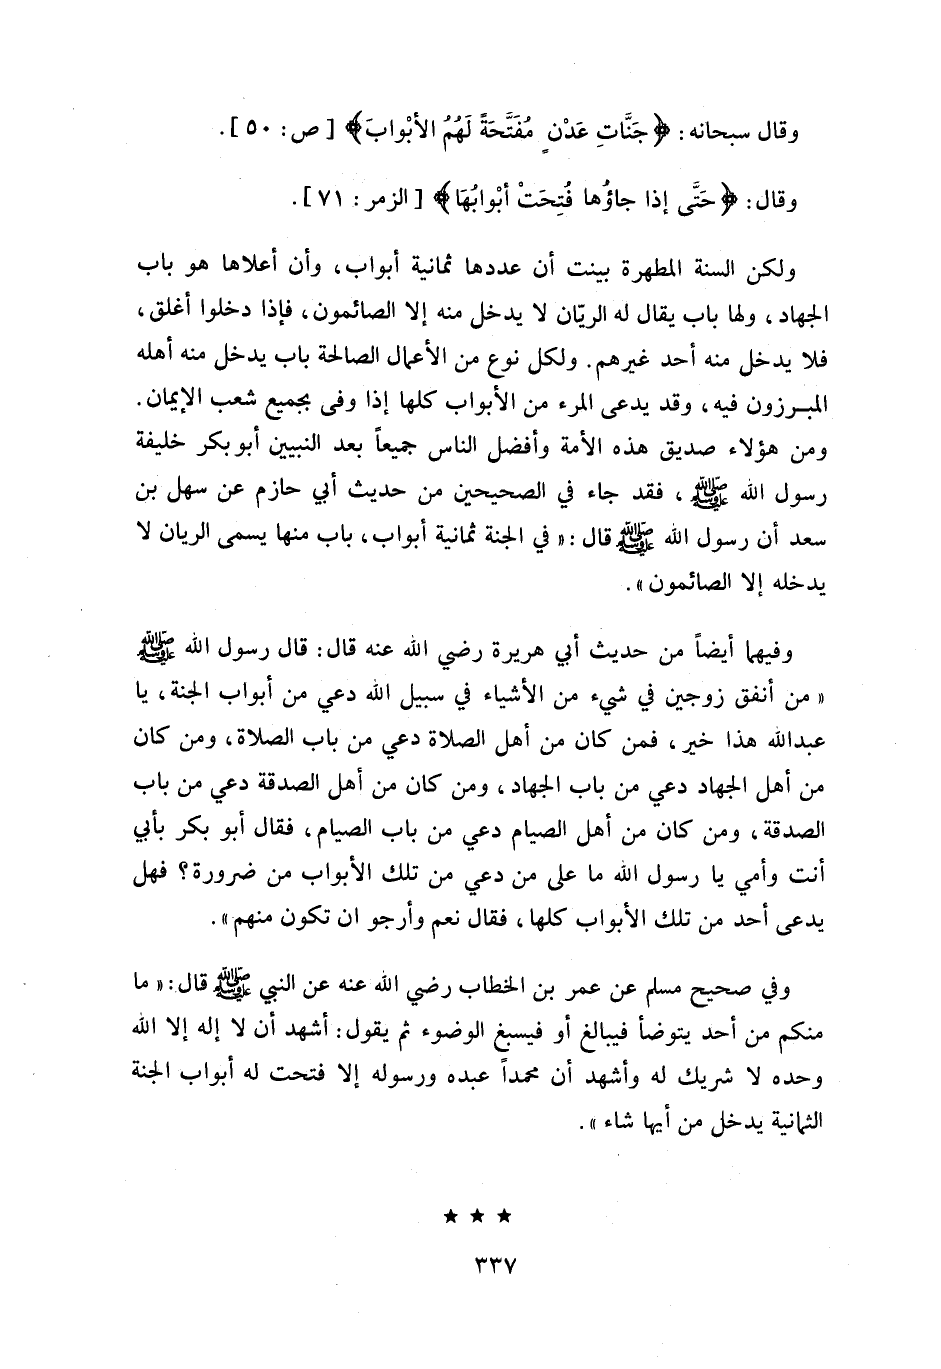 وقال سبحانه: ﴿جَنَّاتِ عَدْنٍ مُفَتَّحَةً لَهُمُ الأبْوابَ﴾ [ ص: ٥٠ ].
وقال: ﴿حَتَّى إذا جاؤُها فُتِحَتْ أبْوابُهَا﴾ [ الزمر: ٧١ ].
ولكن السنة المطهرة بينت أن عددها ثمانية أبواب، وأن أعلاها هو باب
الجهاد، ولها باب يقال له الريّان لا يدخل منه إلا الصائمون، فإذا دخلوا أغلق،
فلا يدخل منه أحد غيرهم. ولكل نوع من الأعمال الصالحة باب يدخل منه أهله
المبرزون فيه، وقد يدعى المرء من الأبواب كلها إذا وفى بجميع شعب الإيمان.
ومن هؤلاء صديق هذه الأمة وأفضل الناس جميعاً بعد النبيين أبو بكر خليفة
رسول الله ﷺ ، فقد جاء في الصحيحين من حديث أبي حازم عن سهل بن
سعد أن رسول الله ﷺ قال: « في الجنة ثمانية أبواب، باب منها يسمى الريان لا
يدخله إلا الصائمون ».
وفيهما أيضاً من حديث أبي هريرة رضي الله عنه قال: قال رسول الله ﷺ
« من أنفق زوجين في شيء من الأشياء في سبيل الله دعي من أبواب الجنة، يا
عبدالله هذا خير، فمن كان من أهل الصلاة دعي من باب الصلاة، ومن كان
من أهل الجهاد دعي من باب الجهاد، ومن كان من أهل الصدقة دعي من باب
الصدقة، ومن كان من أهل الصيام دعي من باب الصيام، فقال أبو بكر بأبي
أنت وأمي يا رسول الله ما على من دعي من تلك الأبواب من ضرورة؟ فهل
يدعى أحد من تلك الأبواب كلها، فقال نعم وأرجو ان تكون منهم».
وفي صحيح مسلم عن عمر بن الخطاب رضي الله عنه عن النبي ﷺ قال: « ما
منكم من أحد يتوضأ فيبالغ أو فيسبغ الوضوء ثم يقول: أشهد أن لا إله إلا الله
وحده لا شريك له وأشهد أن محمداً عبده ورسوله إلا فتحت له أبواب الجنة
الثمانية يدخل من أيها شاء ».
★ ★ ★
٣٣٧